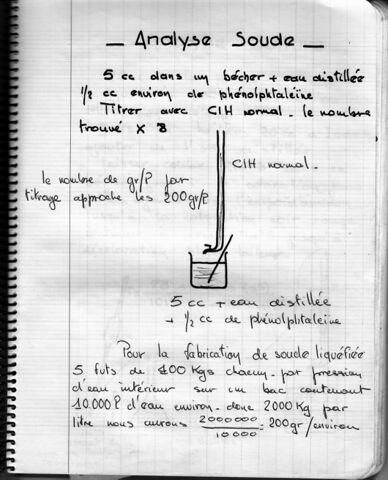 — Analyse Soude —
5 cc dans un bécher + eau distillée
1/2 cc environ de phénolphtaleïne
Titrer avec ClH normal. le nombre
trouvé X 8
ClH normal.
le nombre de gr/l par
titrage approche les 200gr/l
5 cc + eau distillée
+ 1/2 cc de phénolphtaleine
Pour la fabrication de soude liquéfiée
5 futs de 400 Kgs chacun. par pression
d'eau intérieur sur un bac contenant
10.000 l d'eau environ. donc 2000 Kg par
litre nous aurons 2000000/10000 = 200gr/environ